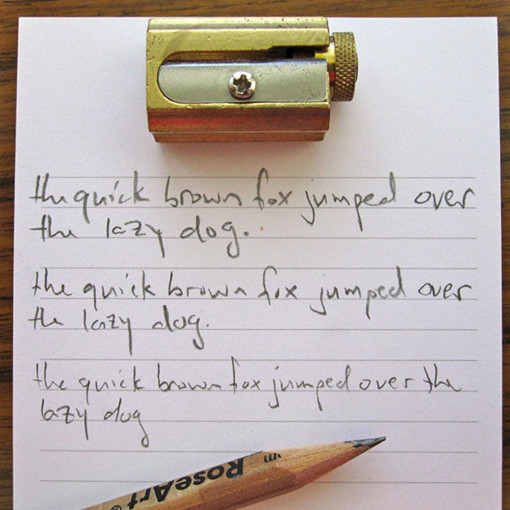 the quick brown fox jumped over
the lazy dog.
the quick brown fox jumped over
the lazy dog.
the quick brown fox jumped over the
lazy dog
RoseArt®